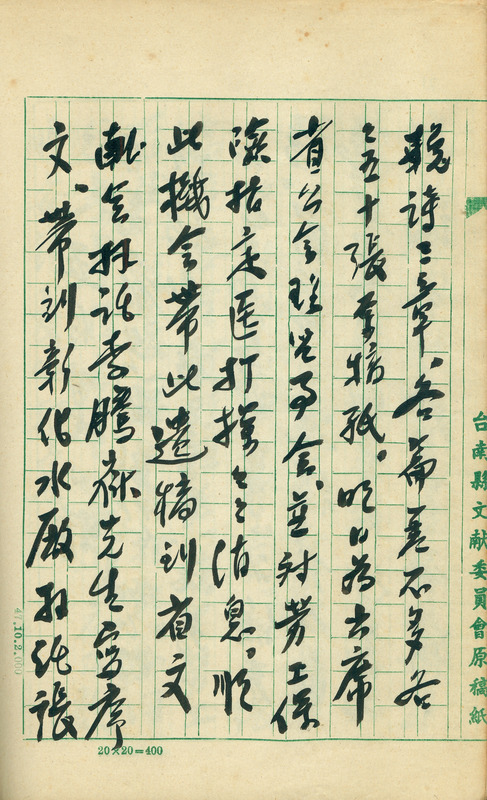 輓詩三章、各篇差不多各
三五十張草稿紙。明日為出席
省公會理監事會、並討勞工保
險指定医打探之消息、順
此機會帶此遺稿到省文
献會拜託李騰嶽先生寫序
文、帶到彰化水廠拜託張
台南縣文献委員會原稿紙
20×20=400
10.2.